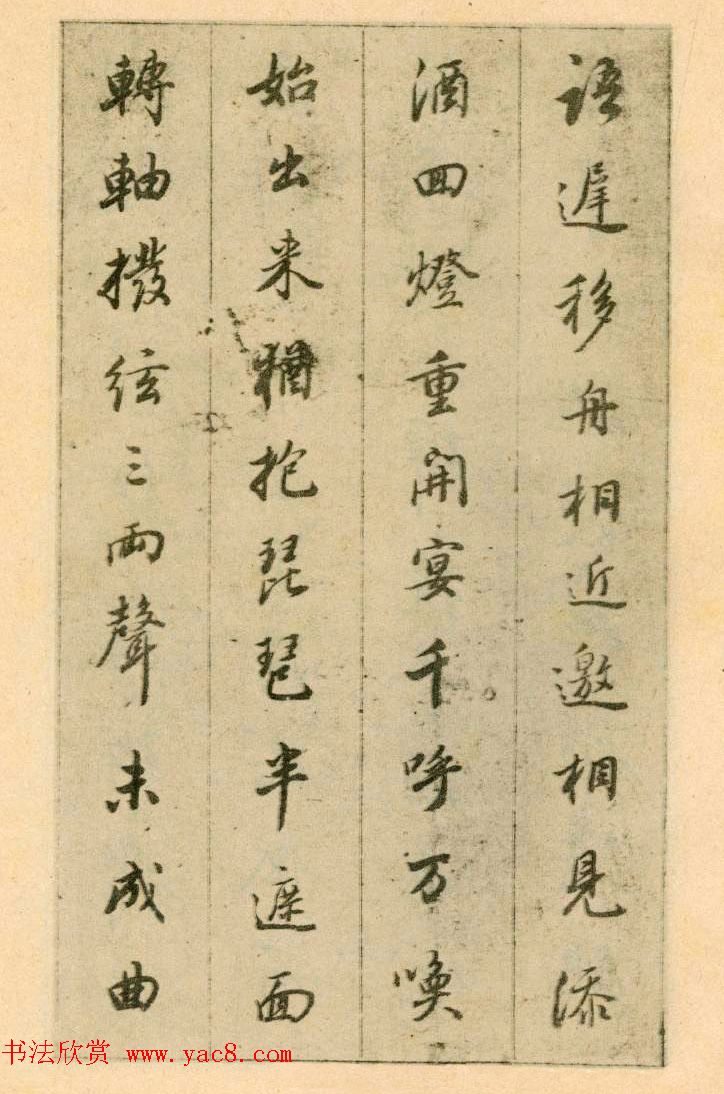 語遲移舟相近邀相見添
酒回燈重開宴千呼万喚
始出来猶抱琵琶半遮面
轉軸撥絃三兩聲未成曲
书法欣赏 www.yac8.com